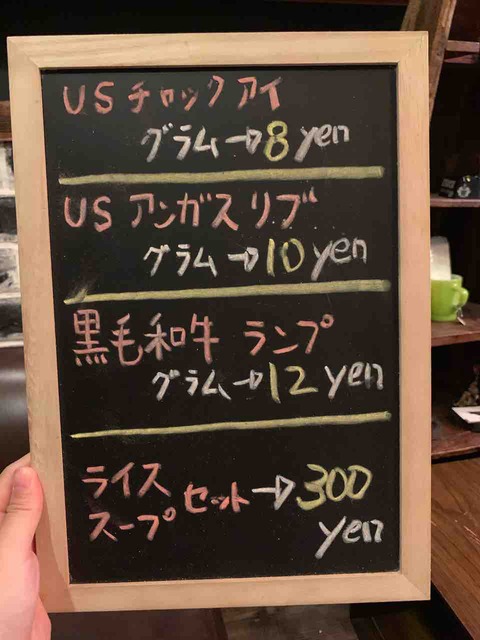 USチャックアイ
グラム→8yen
USアンガスリブ
グラム→10yen
黒毛和牛 ランプ
グラム→12yen
ライス
スープ セット→300
yen